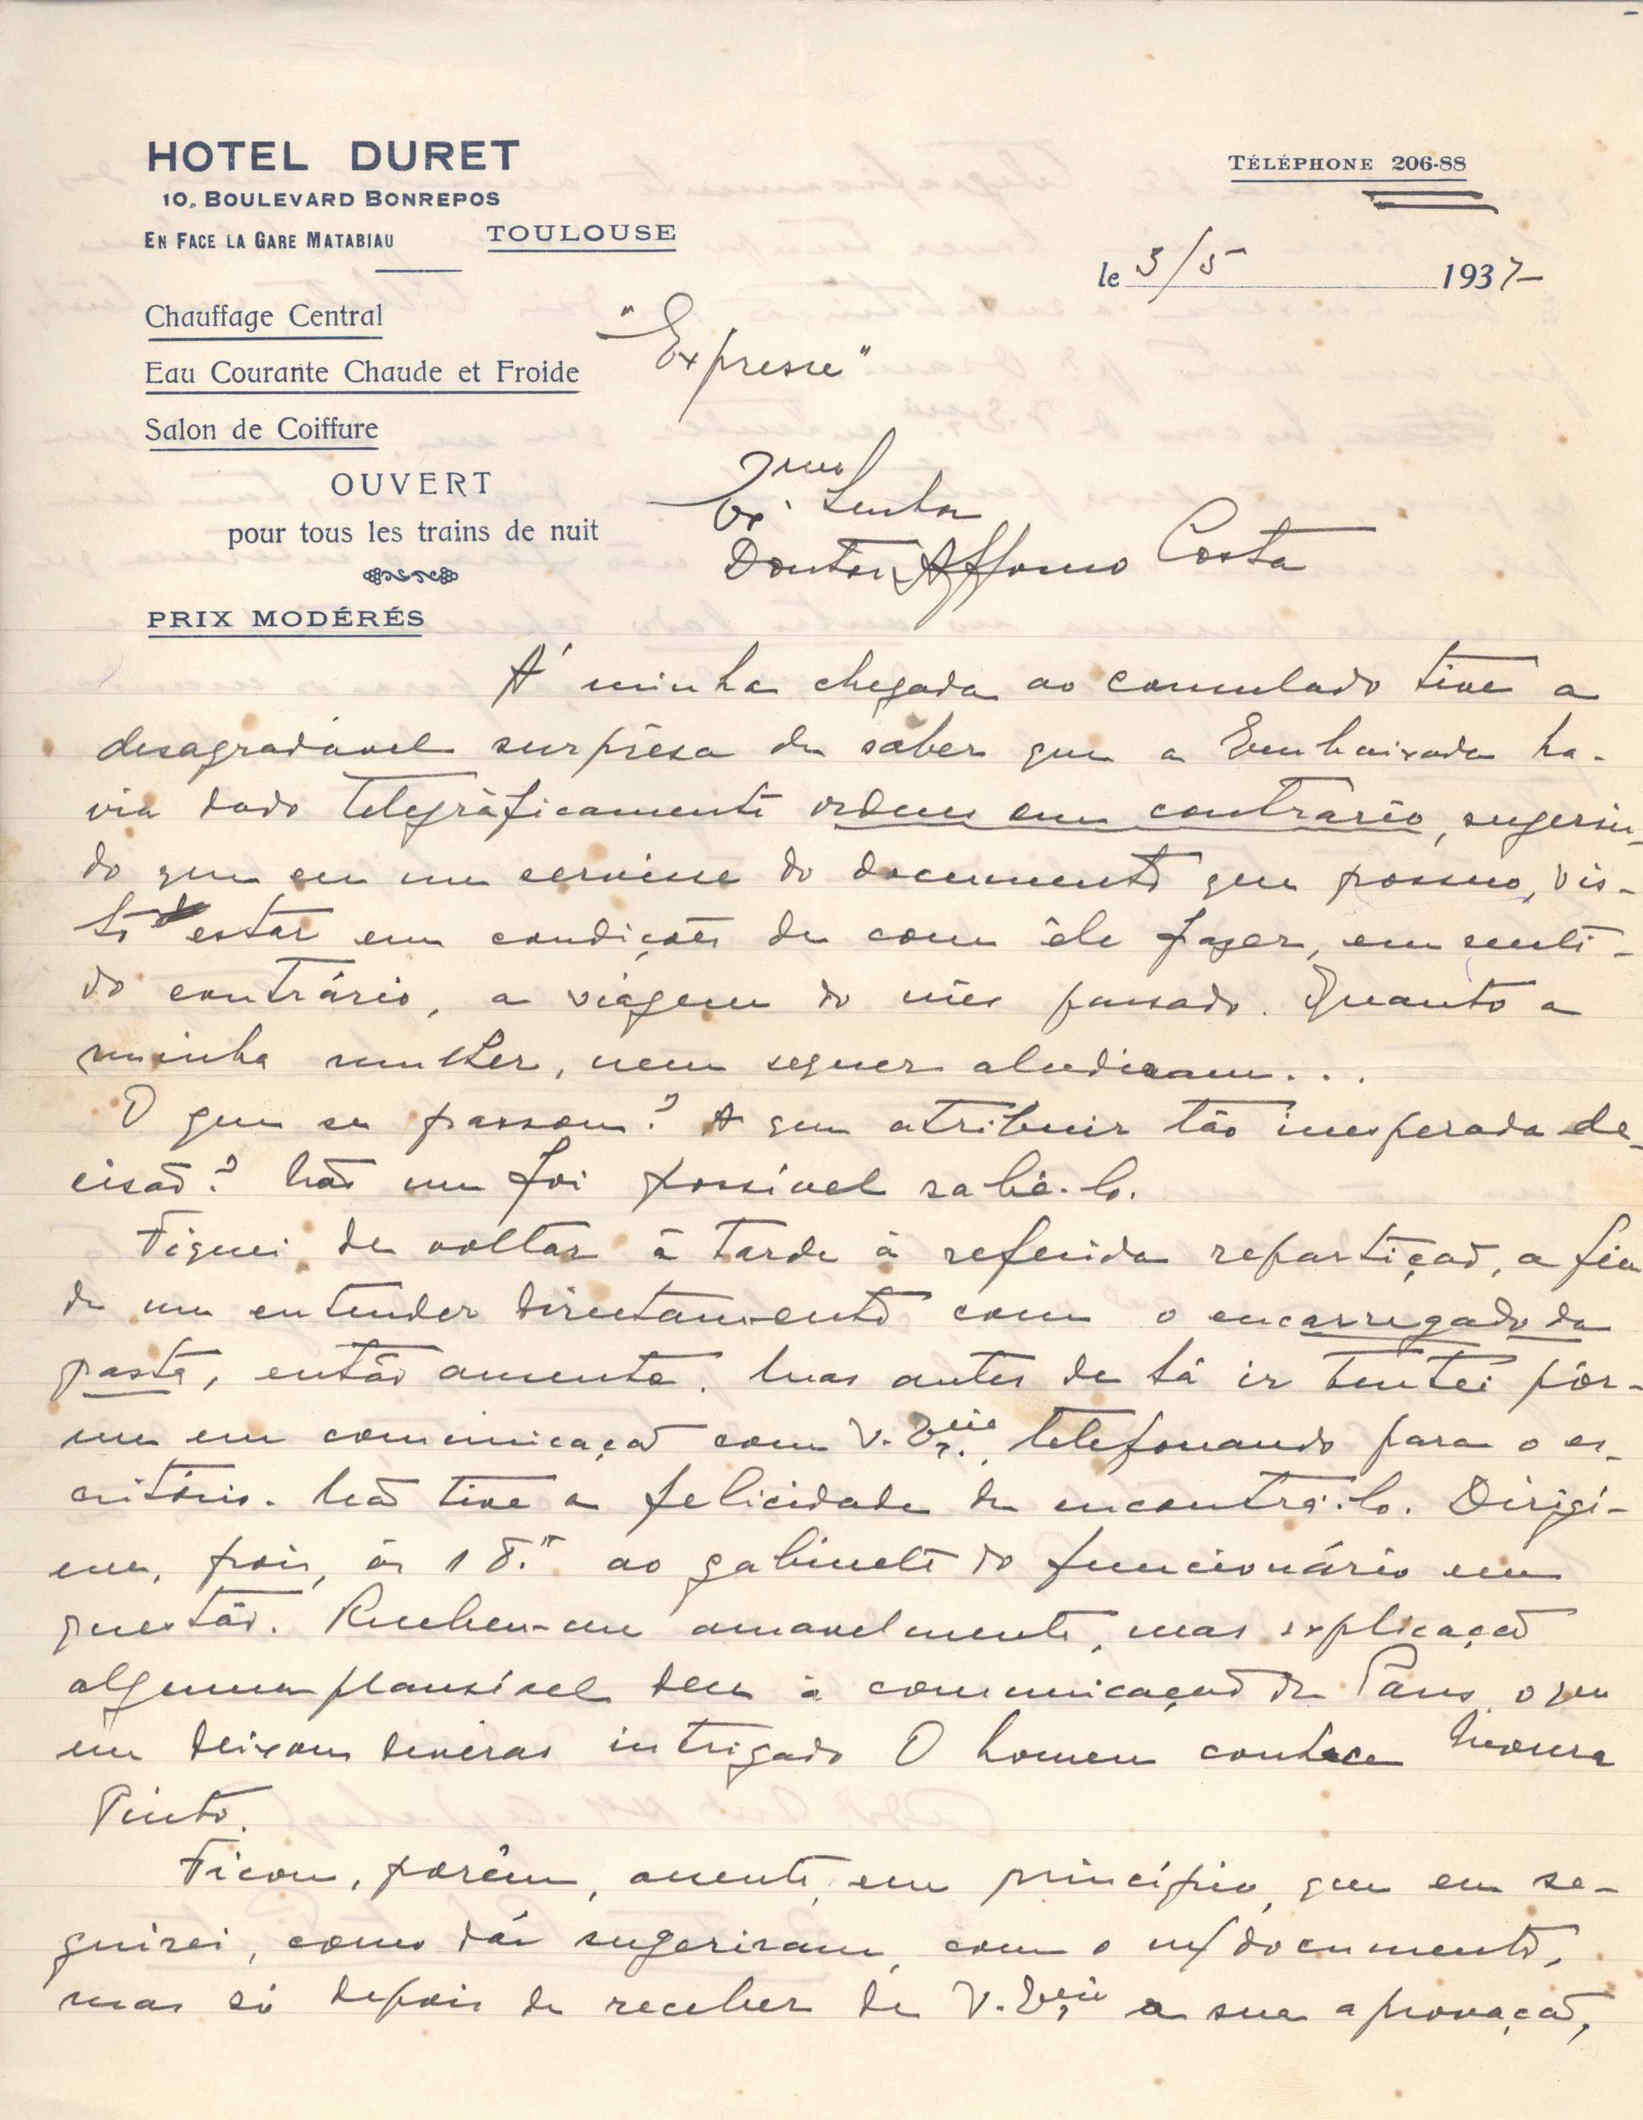 HOTEL DURET
10, BOULEVARD BONREPOS
EN FACE LA GARE MATABIAU
TOULOUSE
TÉLÉPHONE 206-88
le 5/5 1937
Chauffage Central
Eau Courante Chaude et Froide
Salon de Coiffure
OUVERT
pour tous les trains de nuit
PRIX MODÉRÉS
"Expresse"
Ex.mo Senhor
Doutor Affonso Costa
A' minha chegada ao consulado tive a
desagradável surprêsa de saber que a Embaixada ha-
via dado telegràficamente ordens em contrário, sugerin-
do que eu me servisse do documento que possuo, vis-
to estar em condições de com êle fazer, em senti-
do contrário, a viagem do mês passado. Quanto a
minha mulher, nem sequer aludiram...
O que se passou? A que atribuir tão inesperada de-
cisão? Não me foi possível sabê-lo.
Fiquei de voltar à tarde à referida repartição, a fim
de me entender directamente com o encarregado da
pasta, então ausente. Mas antes de lá ir tentei pôr-
me em comunicação com V. Ex.cia, telefonando para o es-
critório. Não tive a felicidade de encontrá-lo. Dirigi-
me, pois, às 18.h ao gabinete do funcionário em
questão. Recebeu-me amavelmente, mas explicação
alguma plausível deu à comunicação de Paris, o que
me deixou deveras intrigado. O homem conhece Moura
Pinto.
Ficou, porêm, assente, em princípio, que eu se-
guirei, como daí sugeriram, com o m/ documento,
mas só depois de receber de V. Ex.cia a sua aprovação,